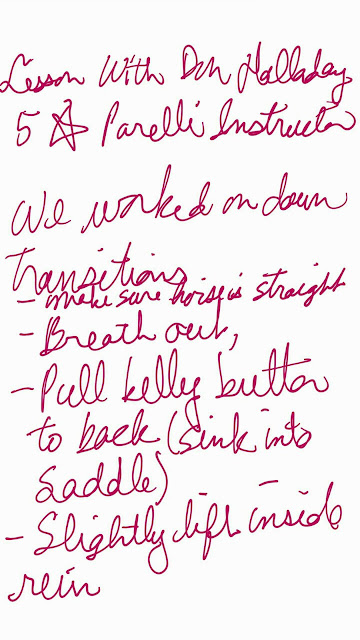 Lesson With Don Halladay
5 ☆ Parelli Instructor
We worked on down
transitions
- make sure horse is straight
- Breath out,
- Pull belly button
to back (sink into
Saddle)
- Slightly lift inside
rein